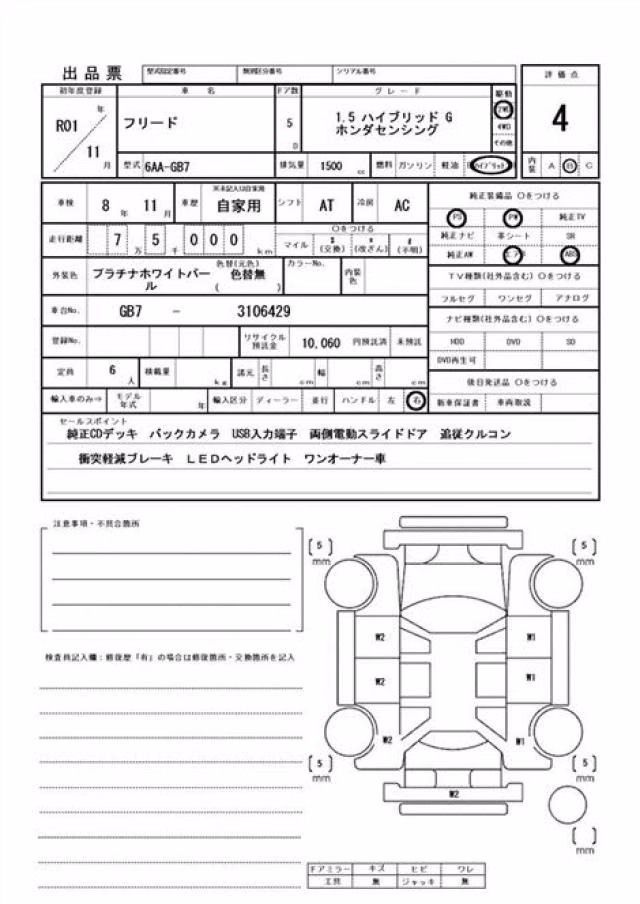 出品票 型式指定番号 類別区分番号 シリアル番号
評価点
初年度登録 車名 ドア数 グレード 駆動
R01 年 11 月
フリード
5 D
1.5 ハイブリッド G
ホンダセンシング
2WD
4WD
その他
4
型式 6AA-GB7 排気量 1500 cc 燃料 ガソリン 軽油 ハイブリッド 内装 A B C
車検 8 年 11 月 車歴 ※未記入は自家用 自家用 シフト AT 冷房 AC
純正装備品 ○をつける
PS PW 純正TV
純正ナビ 革シート SR
純正AW エアB ABS
走行距離 7 万 5 千 0 0 0 km
○をつける
マイル $ (交換) * (改ざん) # (不明)
外装色 プラチナホワイトパール
色替(元色)
色替無
( )
カラーNo.
内装色
TV種類(社外品含む) ○をつける
フルセグ ワンセグ アナログ
車台No. GB7 - 3106429
ナビ種類(社外品含む) ○をつける
HDD DVD SD
DVD再生可
登録No. リサイクル預託金 10,060 円預託済 未預託
定員 6 人 積載量 kg 諸元 長さ cm 幅 cm 高さ cm
後日発送品 ○をつける
新車保証書 車両取説
輸入車のみ⇒ モデル年式 年 輸入区分 ディーラー 並行 ハンドル 左 右
セールスポイント
純正CDデッキ バックカメラ USB入力端子 両側電動スライドドア 追従クルコン
衝突軽減ブレーキ LEDヘッドライト ワンオーナー車
注意事項・不具合箇所
検査員記入欄：修復歴「有」の場合は修復箇所・交換箇所を記入
[ 5 ] mm
[ 5 ] mm
W2 W1
W2 W1
W2 W1
[ 5 ] mm
[ 5 ] mm
W2
[ ] mm
ドアミラー キズ ヒビ ワレ
工具 無 ジャッキ 無